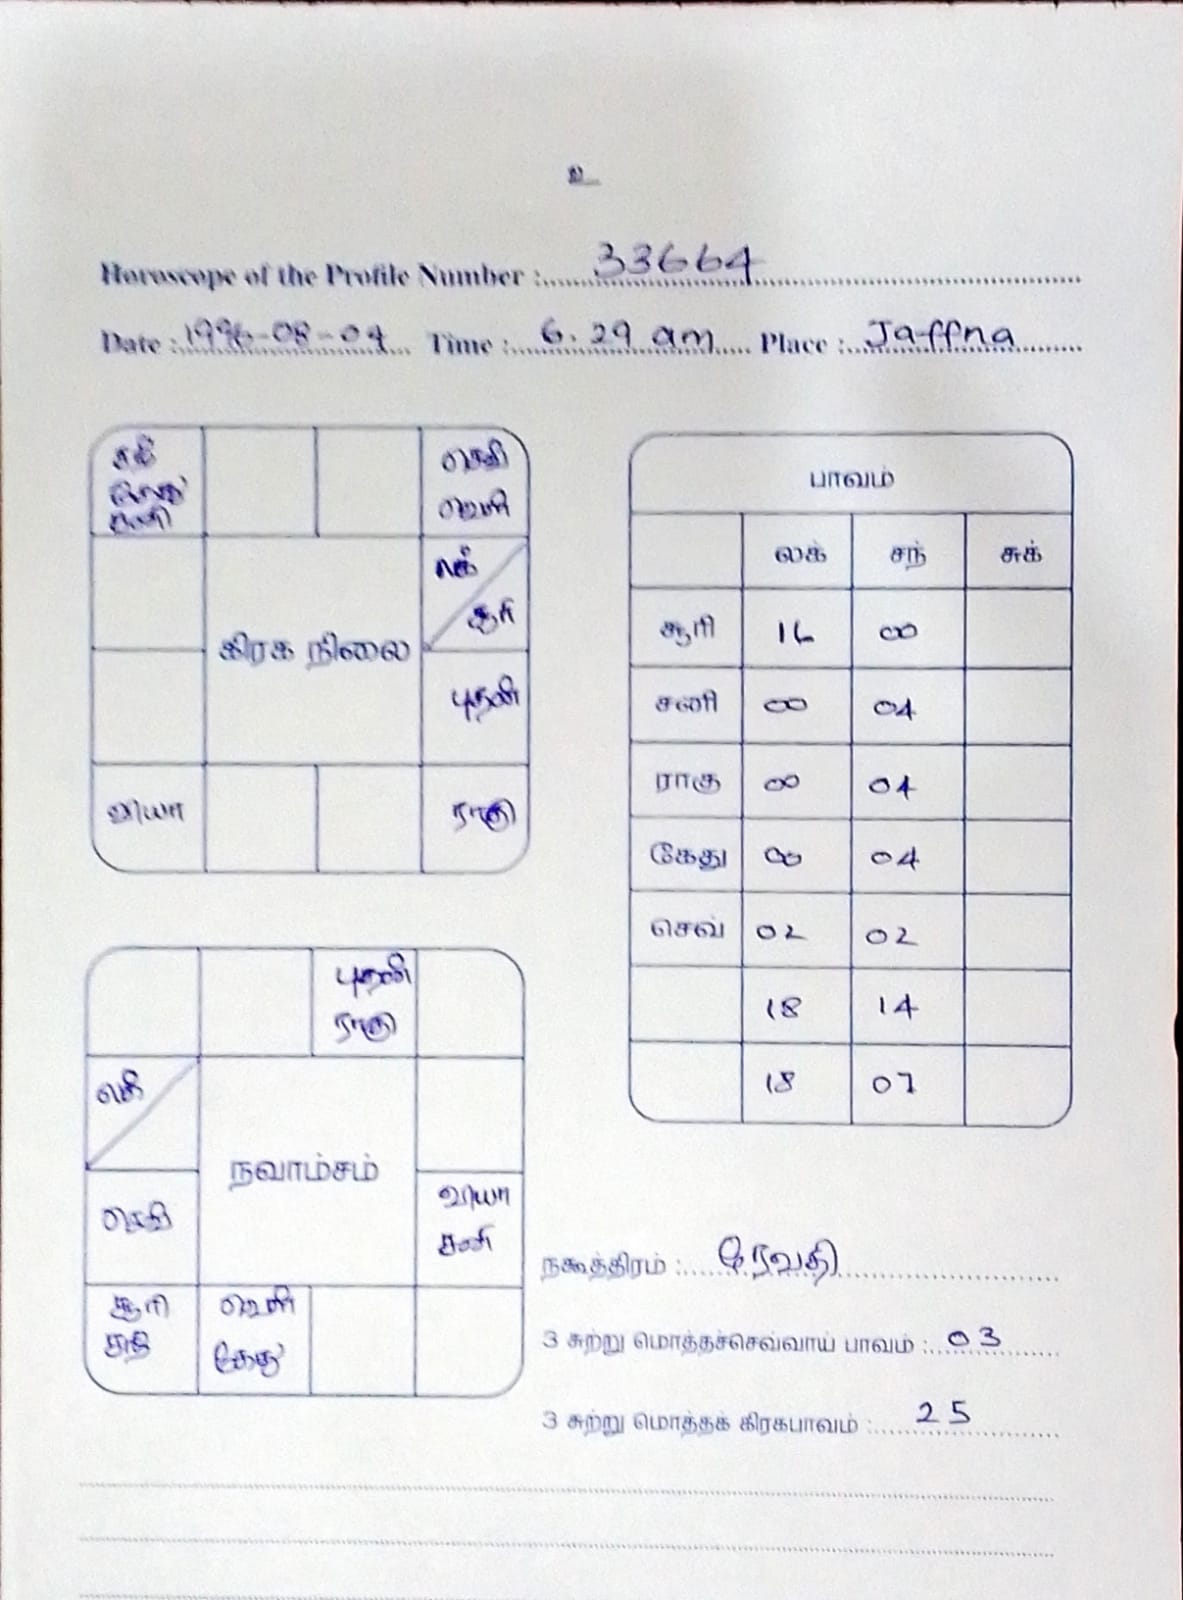 உ
Horoscope of the Profile Number : 33664
Date : 1996-08-04 Time : 6.29 am Place : Jaffna
சனி
செவ்
வெள்
லக்
சூரி
கிரக நிலை
புதன்
வியா
ராகு
பாவம்
லக் சந் சுக்
சூரி 16 00
சனி 00 04
ராகு 00 04
கேது 00 04
செவ் 02 02
18 14
18 07
புதன்
ராகு
நவாம்சம்
வியா
சனி
சூரி
கேது
நக்ஷத்திரம் : ரேவதி
3 சுற்று மொத்தச்செவ்வாய் பாவம் : 03
3 சுற்று மொத்தக் கிரகபாவம் : 25